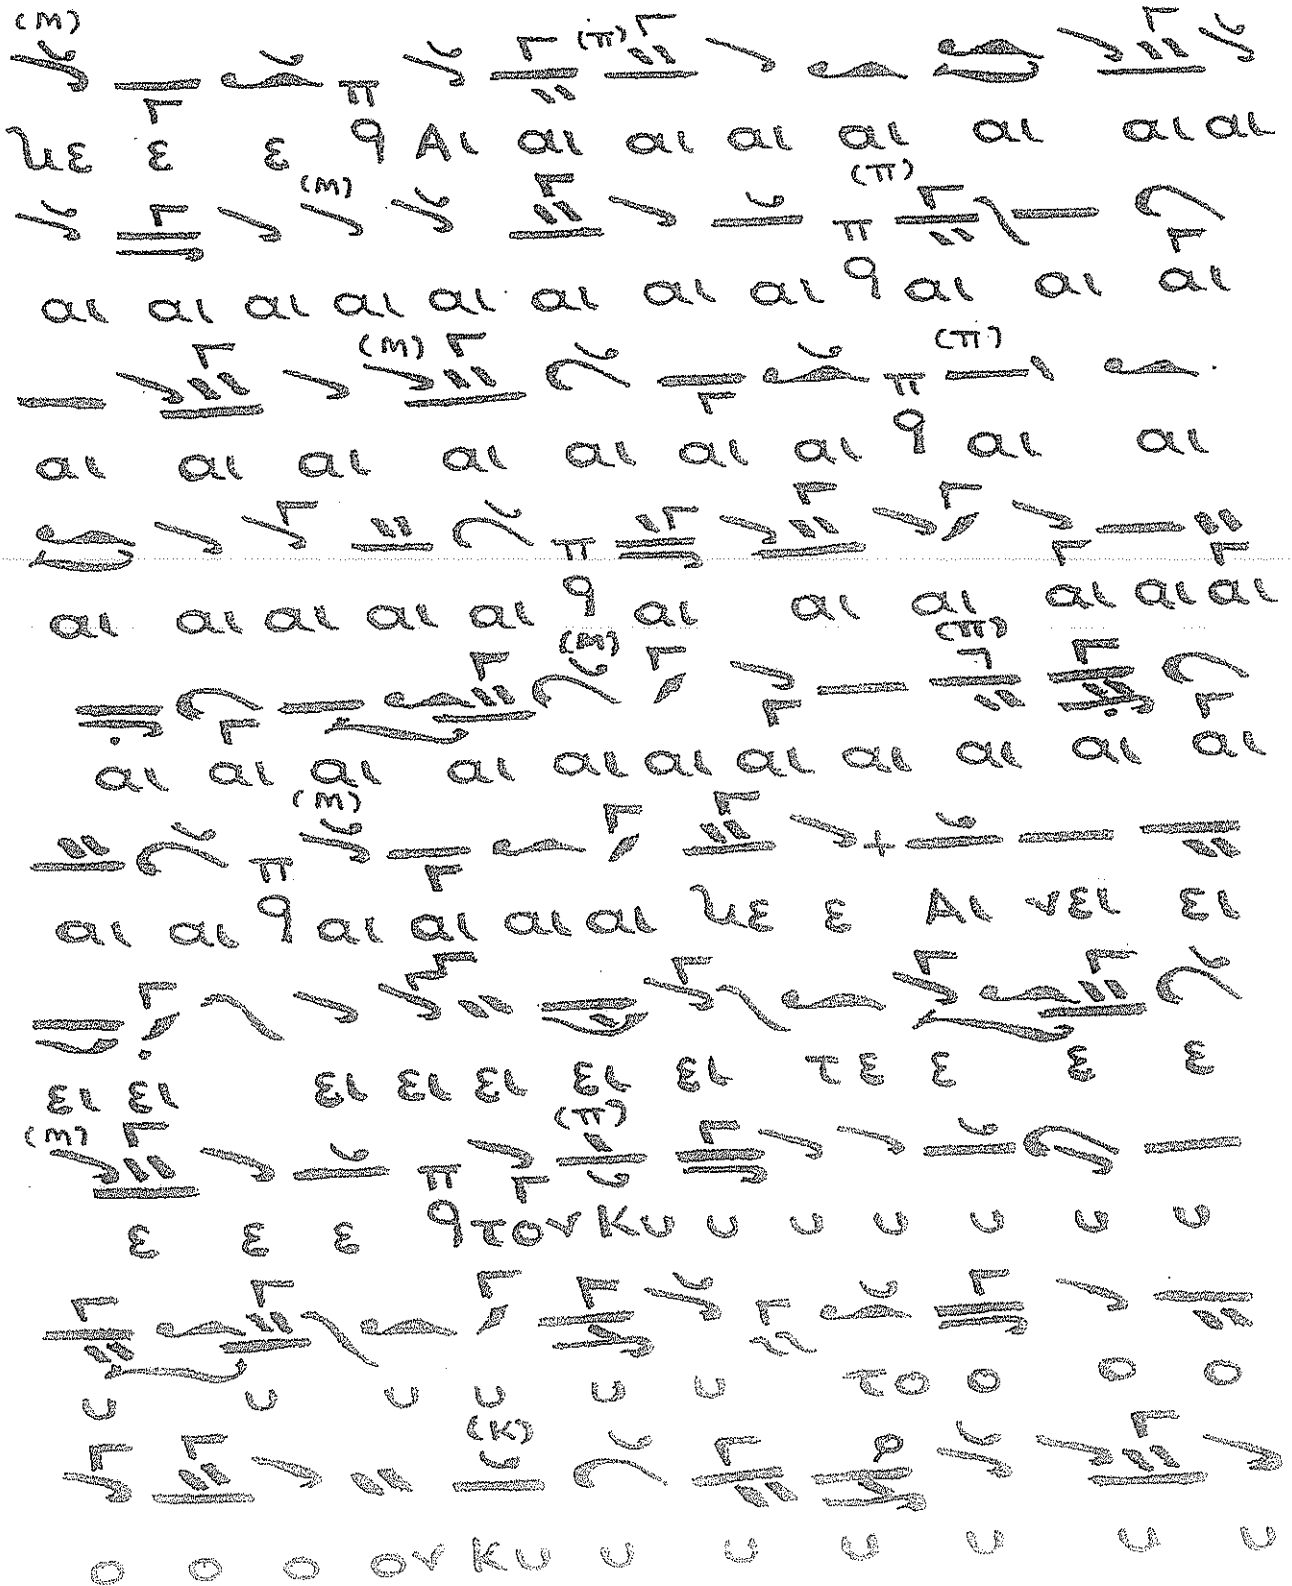 (Μ) (π)
με ε ε π q Αι αι αι αι αι αι αι αι
(Μ) (π)
αι αι αι αι αι αι αι αι π q αι αι αι
(Μ) (π)
αι αι αι αι αι αι αι π q αι αι
αι αι αι αι αι π q αι αι αι αι αι αι
(Μ) (π)
αι αι αι αι αι αι αι αι αι αι αι
(Μ)
αι αι π q αι αι αι αι με ε Αι νει ει
ει ει ει ει ει ει ει τε ε ε ε
(Μ) (π)
ε ε ε π q τον Κυ υ υ υ υ υ υ
υ υ υ υ υ υ το ο ο ο
(κ)
ο ο ο ον Κυ υ υ υ υ υ υ